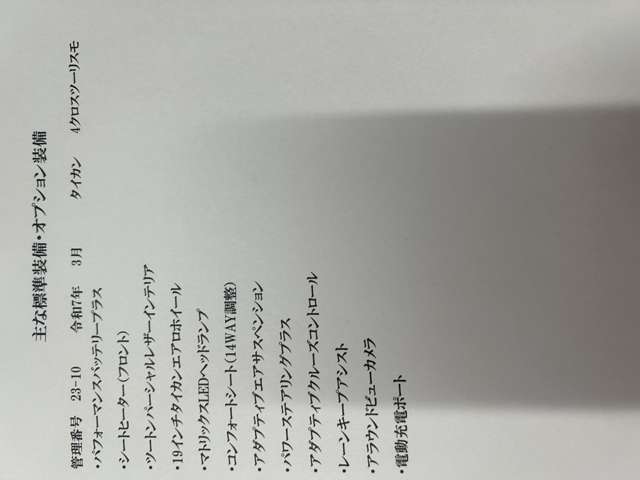 主な標準装備・オプション装備
管理番号 23-10 令和7年 3月 タイカン 4クロスツーリスモ
・パフォーマンスバッテリープラス
・シートヒーター(フロント)
・ツートンパーシャルレザーインテリア
・19インチタイカンエアロホイール
・マトリックスLEDヘッドランプ
・コンフォートシート(14WAY調整)
・アダプティブエアサスペンション
・パワーステアリングプラス
・アダプティブクルーズコントロール
・レーンキープアシスト
・アラウンドビューカメラ
・電動充電ポート